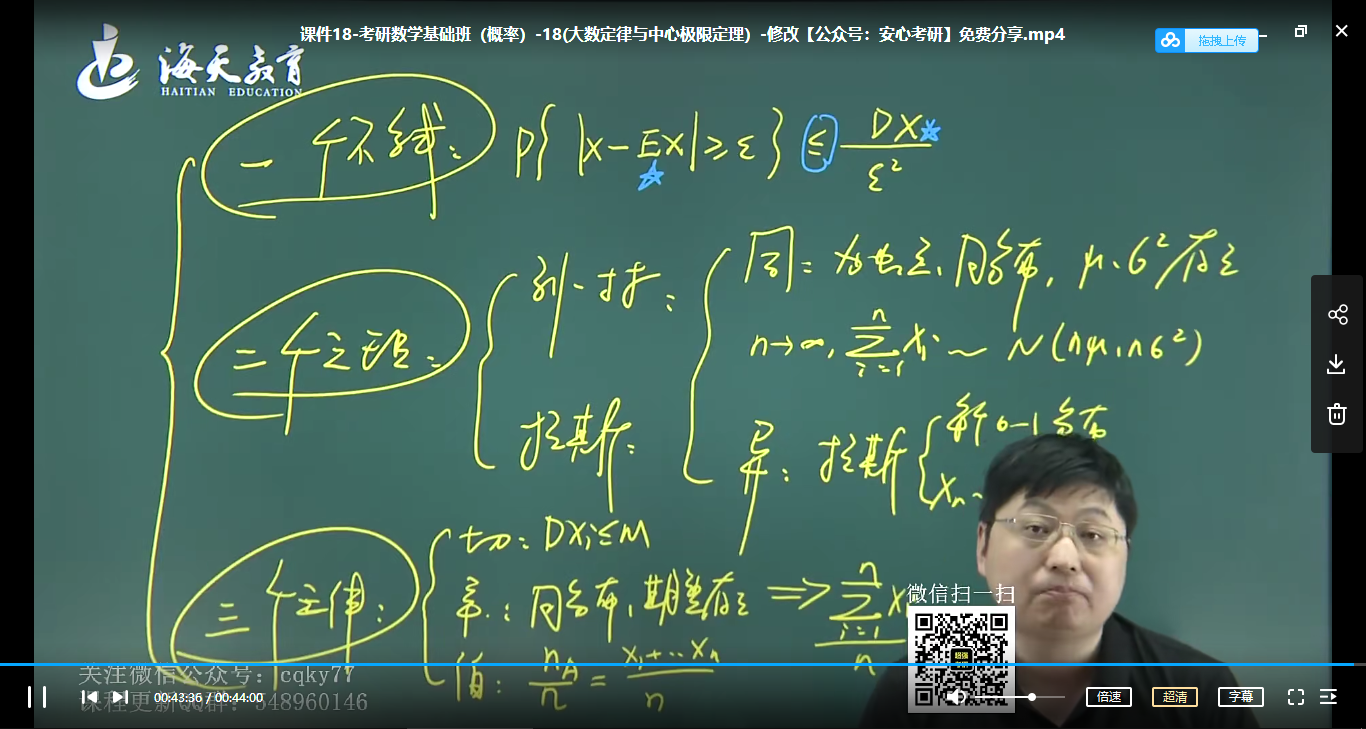 课件18-考研数学基础班（概率）-18(大数定律与中心极限定理）-修改【公众号：安心考研】免费分享.mp4
拖拽上传
海天教育
HAITIAN EDUCATION
一个不等式： P{ |X-EX|≥ε } ≤ DX/ε²
二个定理：
列-林：
同：独立、同分布，μ、σ²存在
n→∞, ∑_{i=1}^{n} Xᵢ ~ N(nμ, nσ²)
拉斯：
异：拉斯
0-1分布
Xn~
三个定律：
切：DXᵢ≤M
辛：同分布，期望存在 ⇒ ∑_{i=1}^{n} X / n
伯： nA/n = X₁+…Xn / n
微信扫一扫
关注微信公众号：cqky77
课程更新QQ群：548960146
00:43:36 / 00:44:00
倍速
超清
字幕